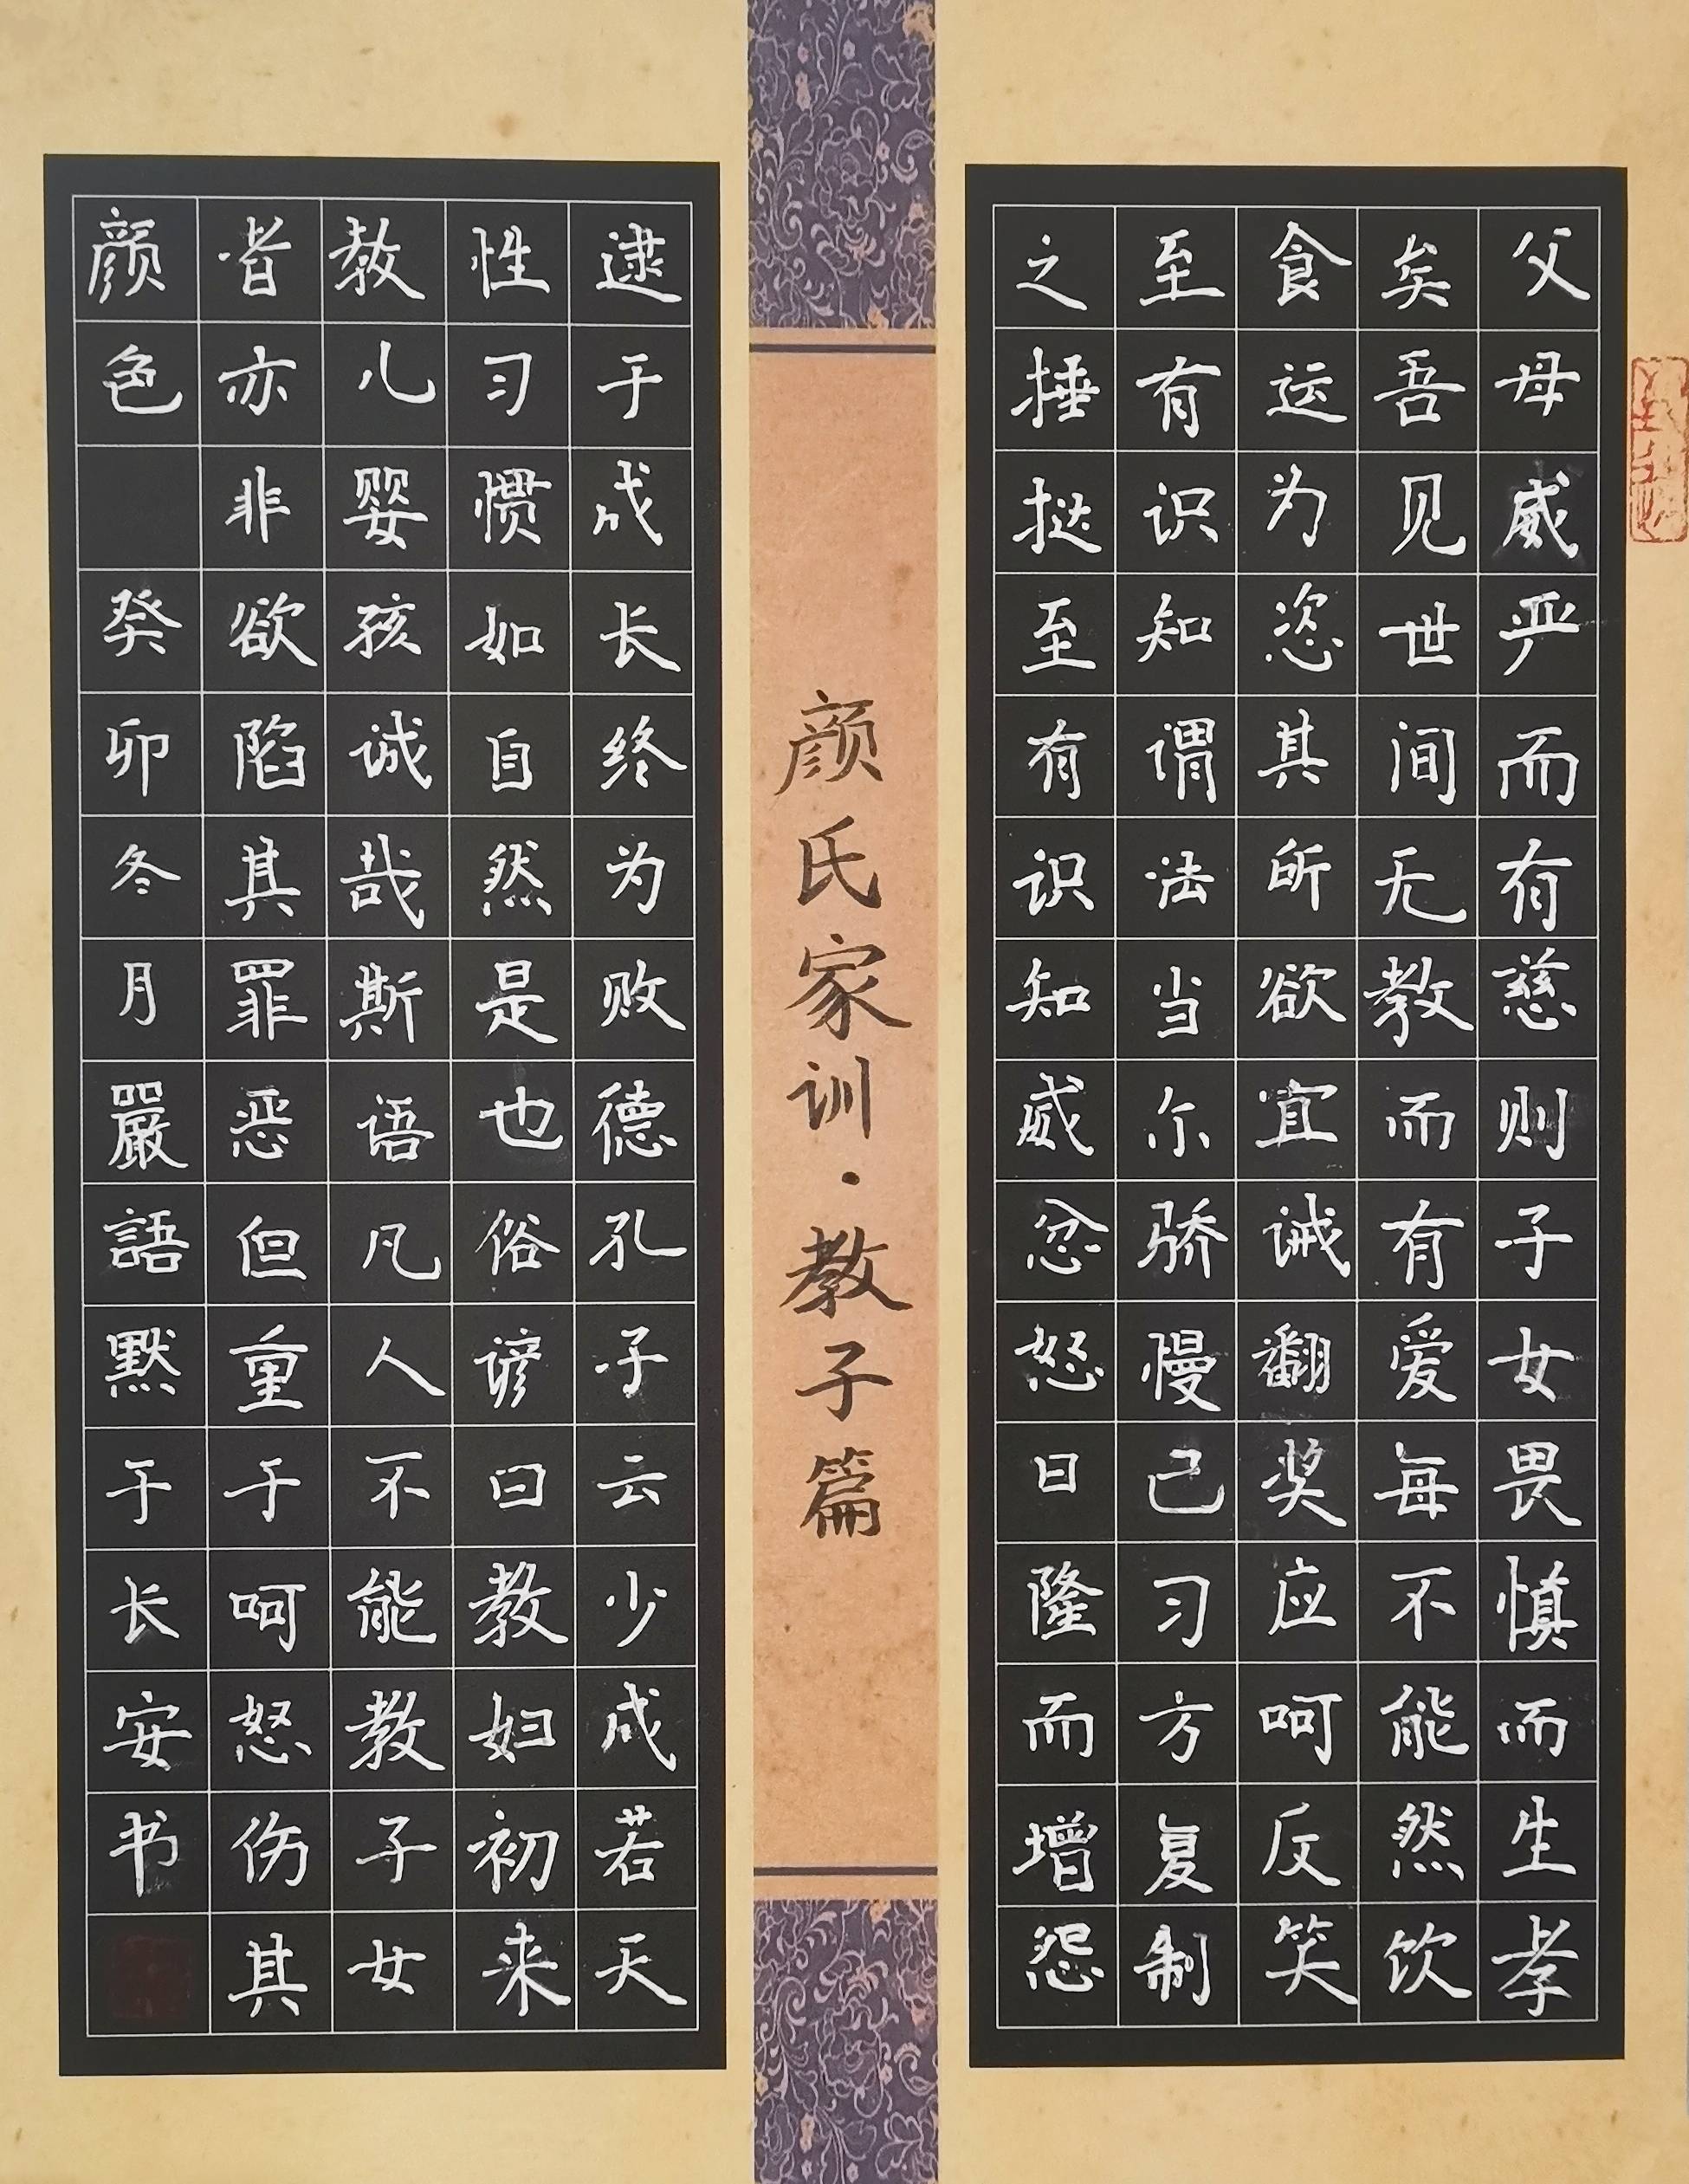 父母威严而有慈则子女畏慎而生孝
矣吾见世间无教而有爱每不能然饮
食运为恣其所欲宜诫翻奖应呵反笑
至有识知谓法当尔骄慢已习方复制
之捶挞至有识知威忿怒日隆而增怨
颜氏家训·教子篇
逮于成长终为败德孔子云少成若天
性习惯如自然是也俗谚曰教妇初来
教儿婴孩诚哉斯语凡人不能教子女
者亦非欲陷其罪恶但重于呵怒伤其
颜色 癸卯冬月嚴語默于长安书